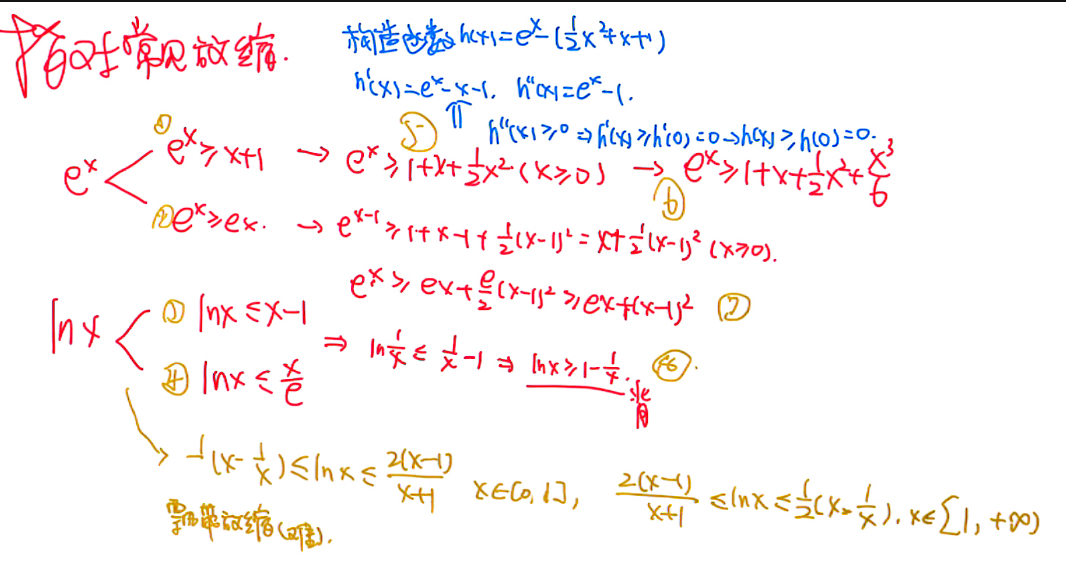 指对常见放缩.
构造函数 h(x)=e^x-(1/2x²+x+1)
h'(x)=e^x-x-1. h''(x)=e^x-1.
h''(x)≥0 ⇒ h'(x)≥h'(0)=0 → h(x)≥h(0)=0.
e^x
① e^x≥x+1 → ⑤ e^x≥1+x+1/2x² (x≥0) → ⑥ e^x≥1+x+1/2x²+x³/6
② e^x≥ex. → e^(x-1)≥1+x-1+1/2(x-1)²=x+1/2(x-1)² (x≥0).
e^x≥ex+e/2(x-1)²≥ex+(x-1)² ⑦
ln x
③ ln x≤x-1
⇒ ln1/x≤1/x-1 ⇒ ln x≥1-1/x.
④ ln x≤x/e
常用
(x-1/x)≤ln x≤2(x-1)/(x+1) x∈(0,1], 2(x-1)/(x+1)≤ln x≤1/2(x-1/x), x∈[1,+∞)
飘带放缩(难).